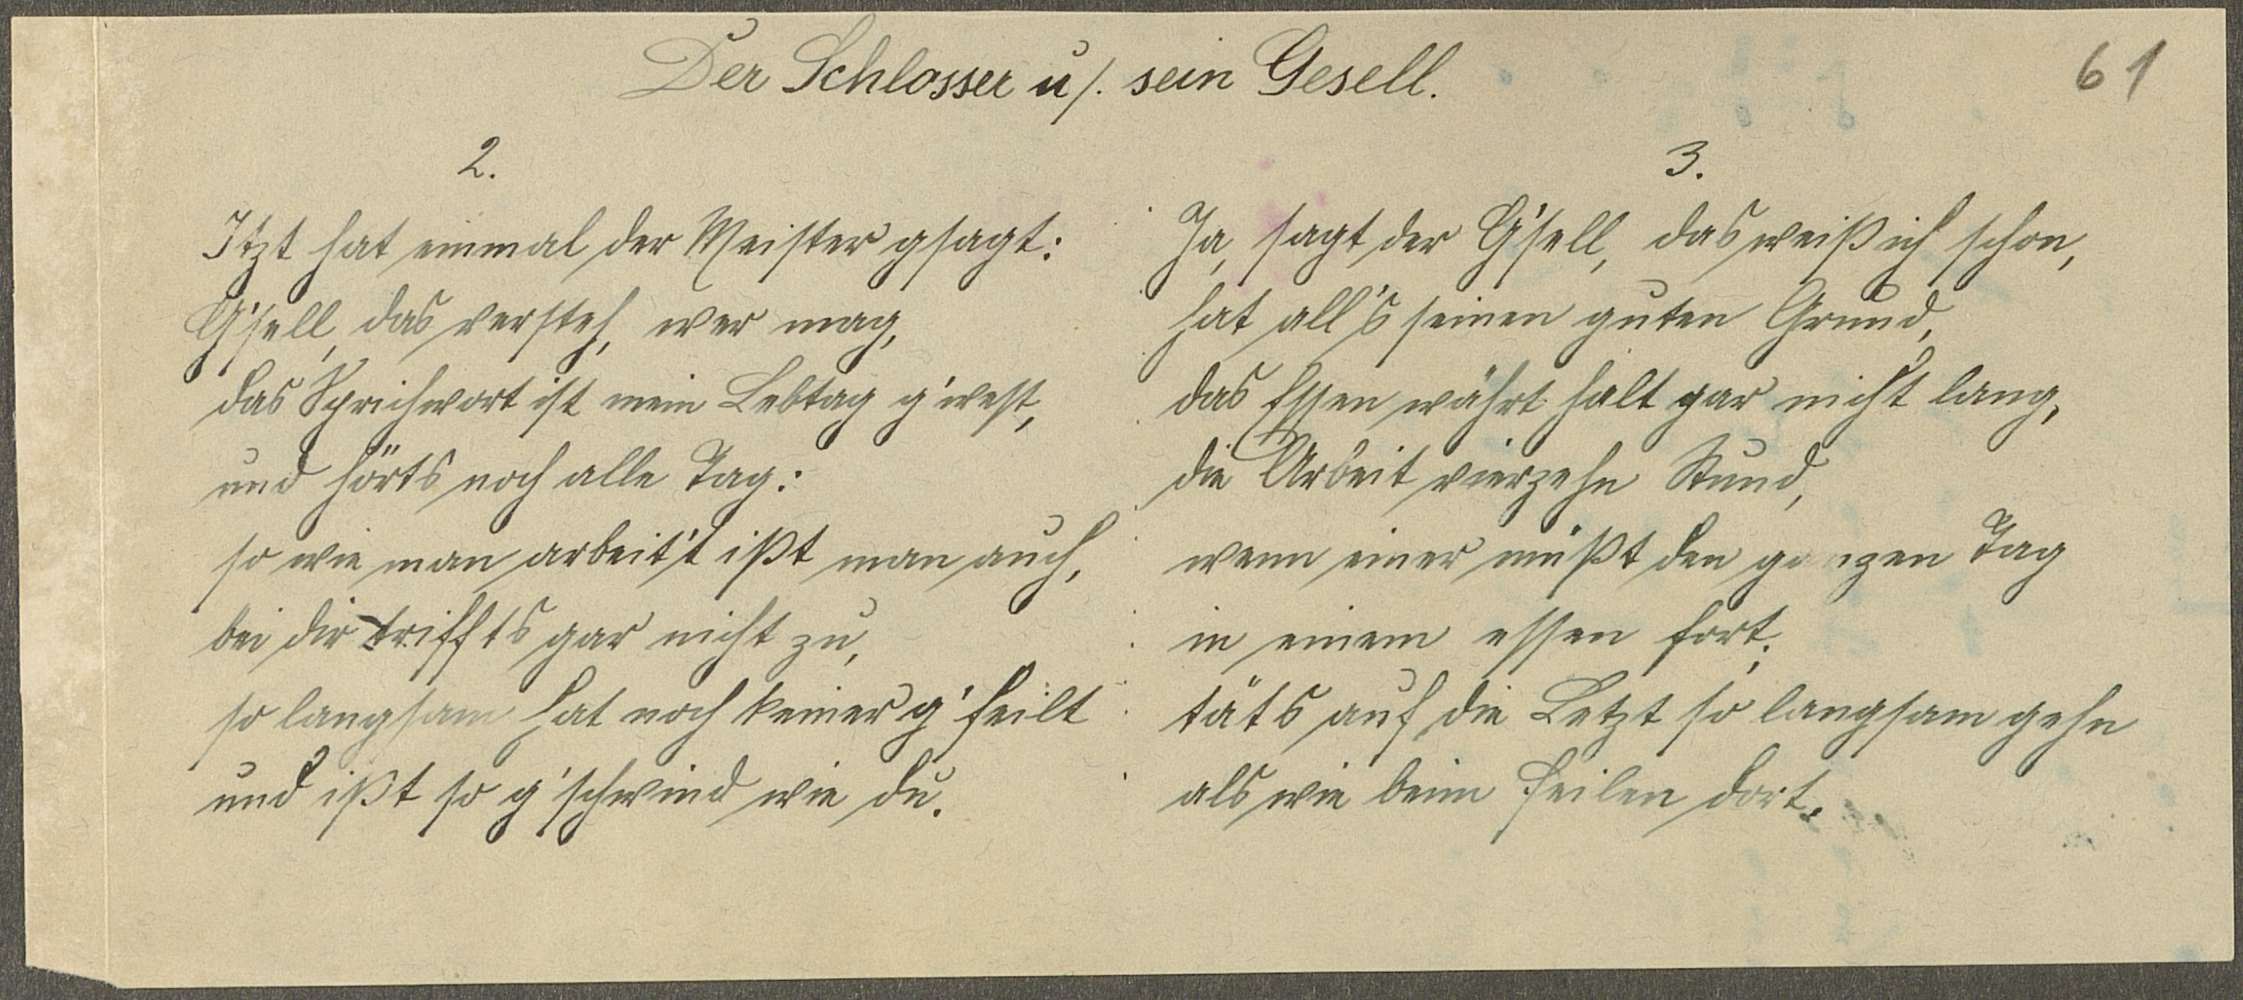 Der Schlosser u/. sein Gesell.
61
2.
Itzt hat einmal der Meister gsagt:
G'sell, das versteh, wer mag,
das Sprichwort ist mein Lebtag g'west,
und hörts noch alle Tag:
so wie man arbeit't ißt man auch,
bei dir triffts gar nicht zu,
so langsam hat noch keiner g'feilt
und ißt so g'schwind wie du.
3.
Ja, sagt der G'sell, das weiß ich schon,
hat all's seinen guten Grund,
das Essen währt halt gar nicht lang,
die Arbeit vierzehn Stund,
wenn einer müßt den ganzen Tag
in einem essen fort,
täts auf die Letzt so langsam gehn
als wie beim Feilen dort.